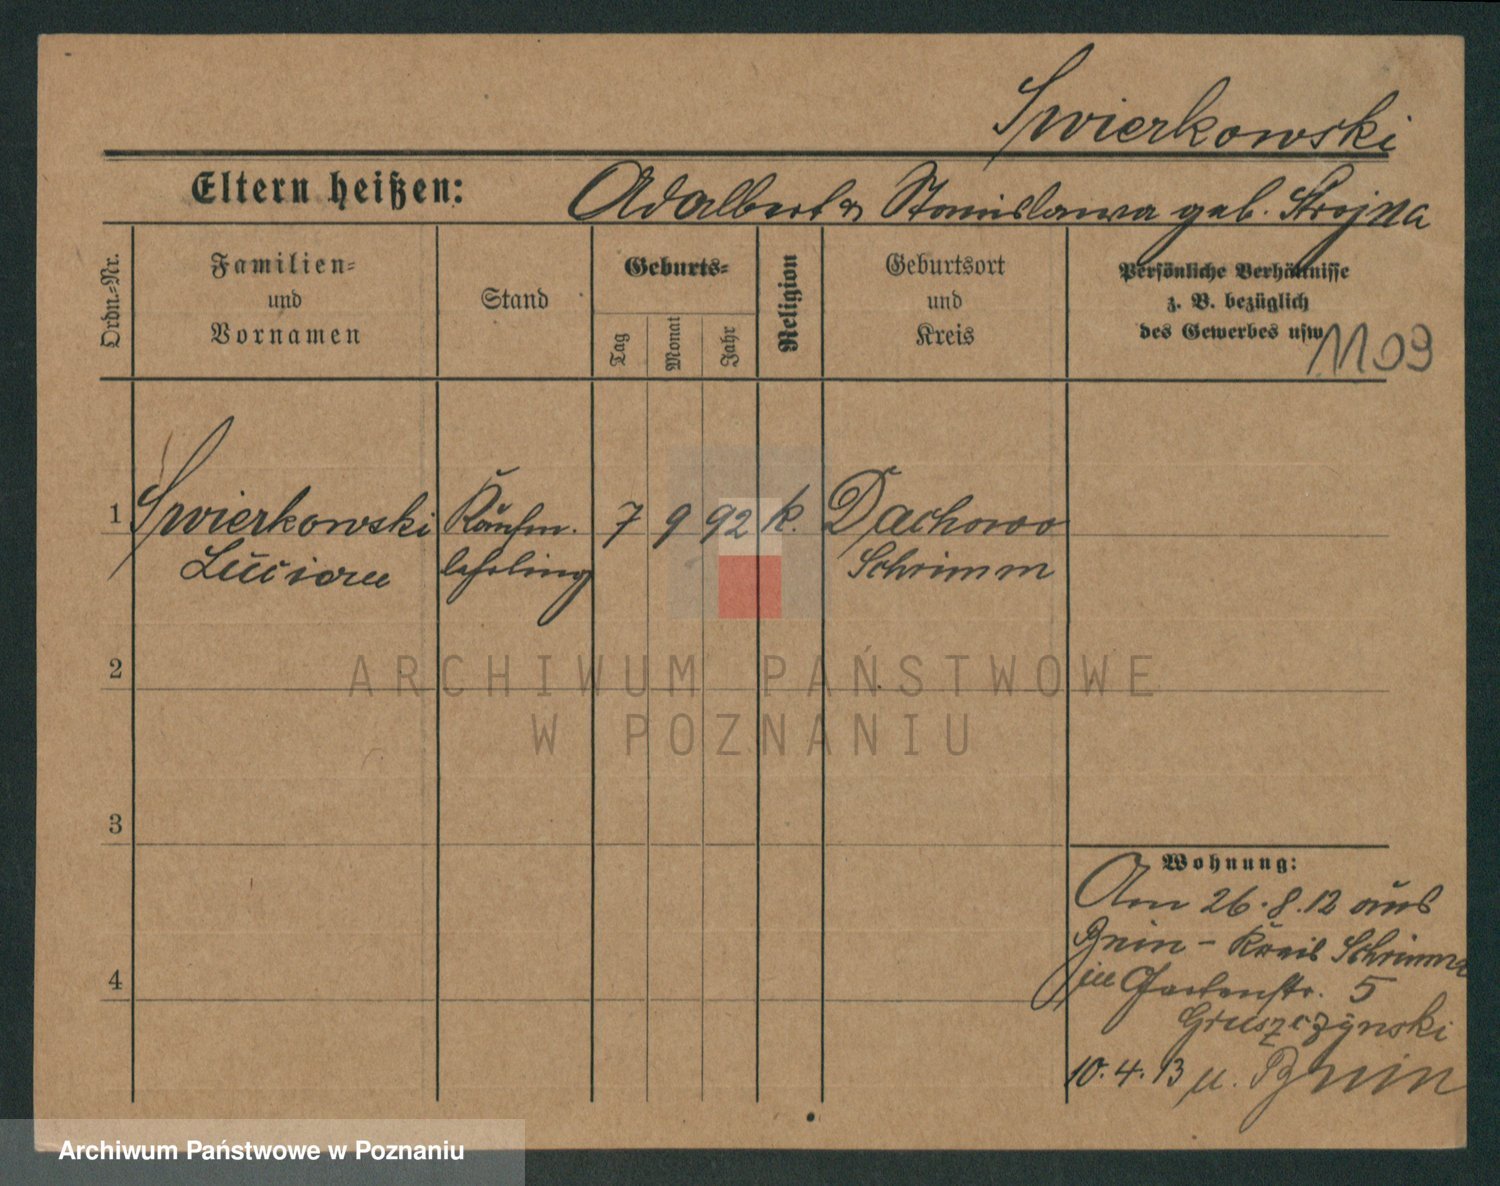 Swierkowski
Eltern heißen: Adalbert & Stanislawa geb. Strojna
Ordn.-Nr.
Familien-
und
Vornamen
Stand
Geburts-
Tag
Monat
Jahr
Religion
Geburtsort
und
Kreis
Persönliche Verhältnisse
z. B. bezüglich
des Gewerbes usw.
1109
1 Swierkowski Kaufm. 7 9 92 k. Dachowo
Lucian lehrling Schrimm
2
3
4
ARCHIWUM PAŃSTWOWE
W POZNANIU
Wohnung:
Am 26.8.12 aus
Bnin - Kreis Schrimm
in Gartenstr. 5
Gruszczynski
10.4.13 n. Bnin
Archiwum Państwowe w Poznaniu